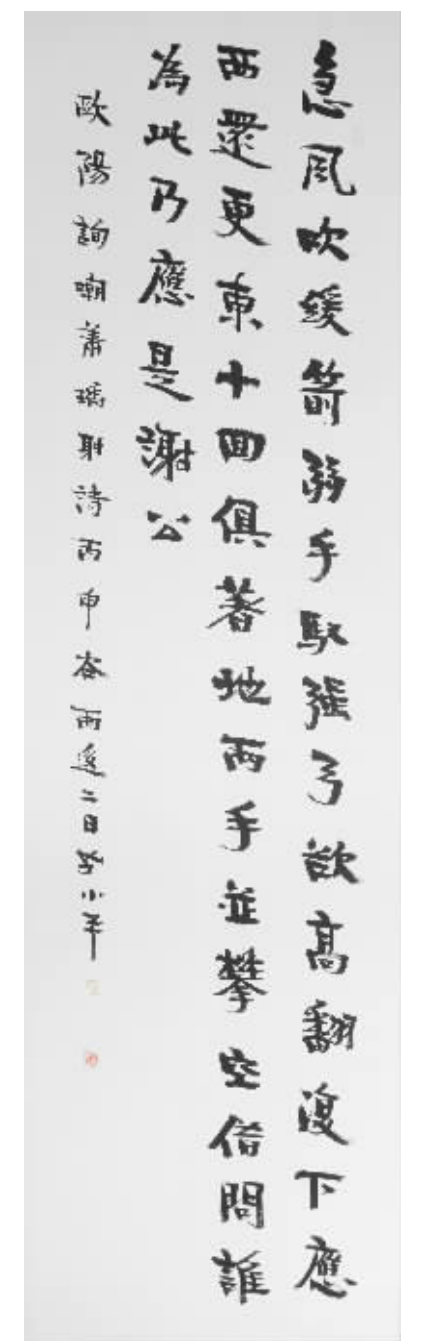 急風吹緩箭弱手馭強弓欲高翻復下應
西還更東十回俱著地兩手並擎空借問誰
為此乃應是謝公
歐陽詢嘲蕭瑀射詩丙申谷雨後二日 小平